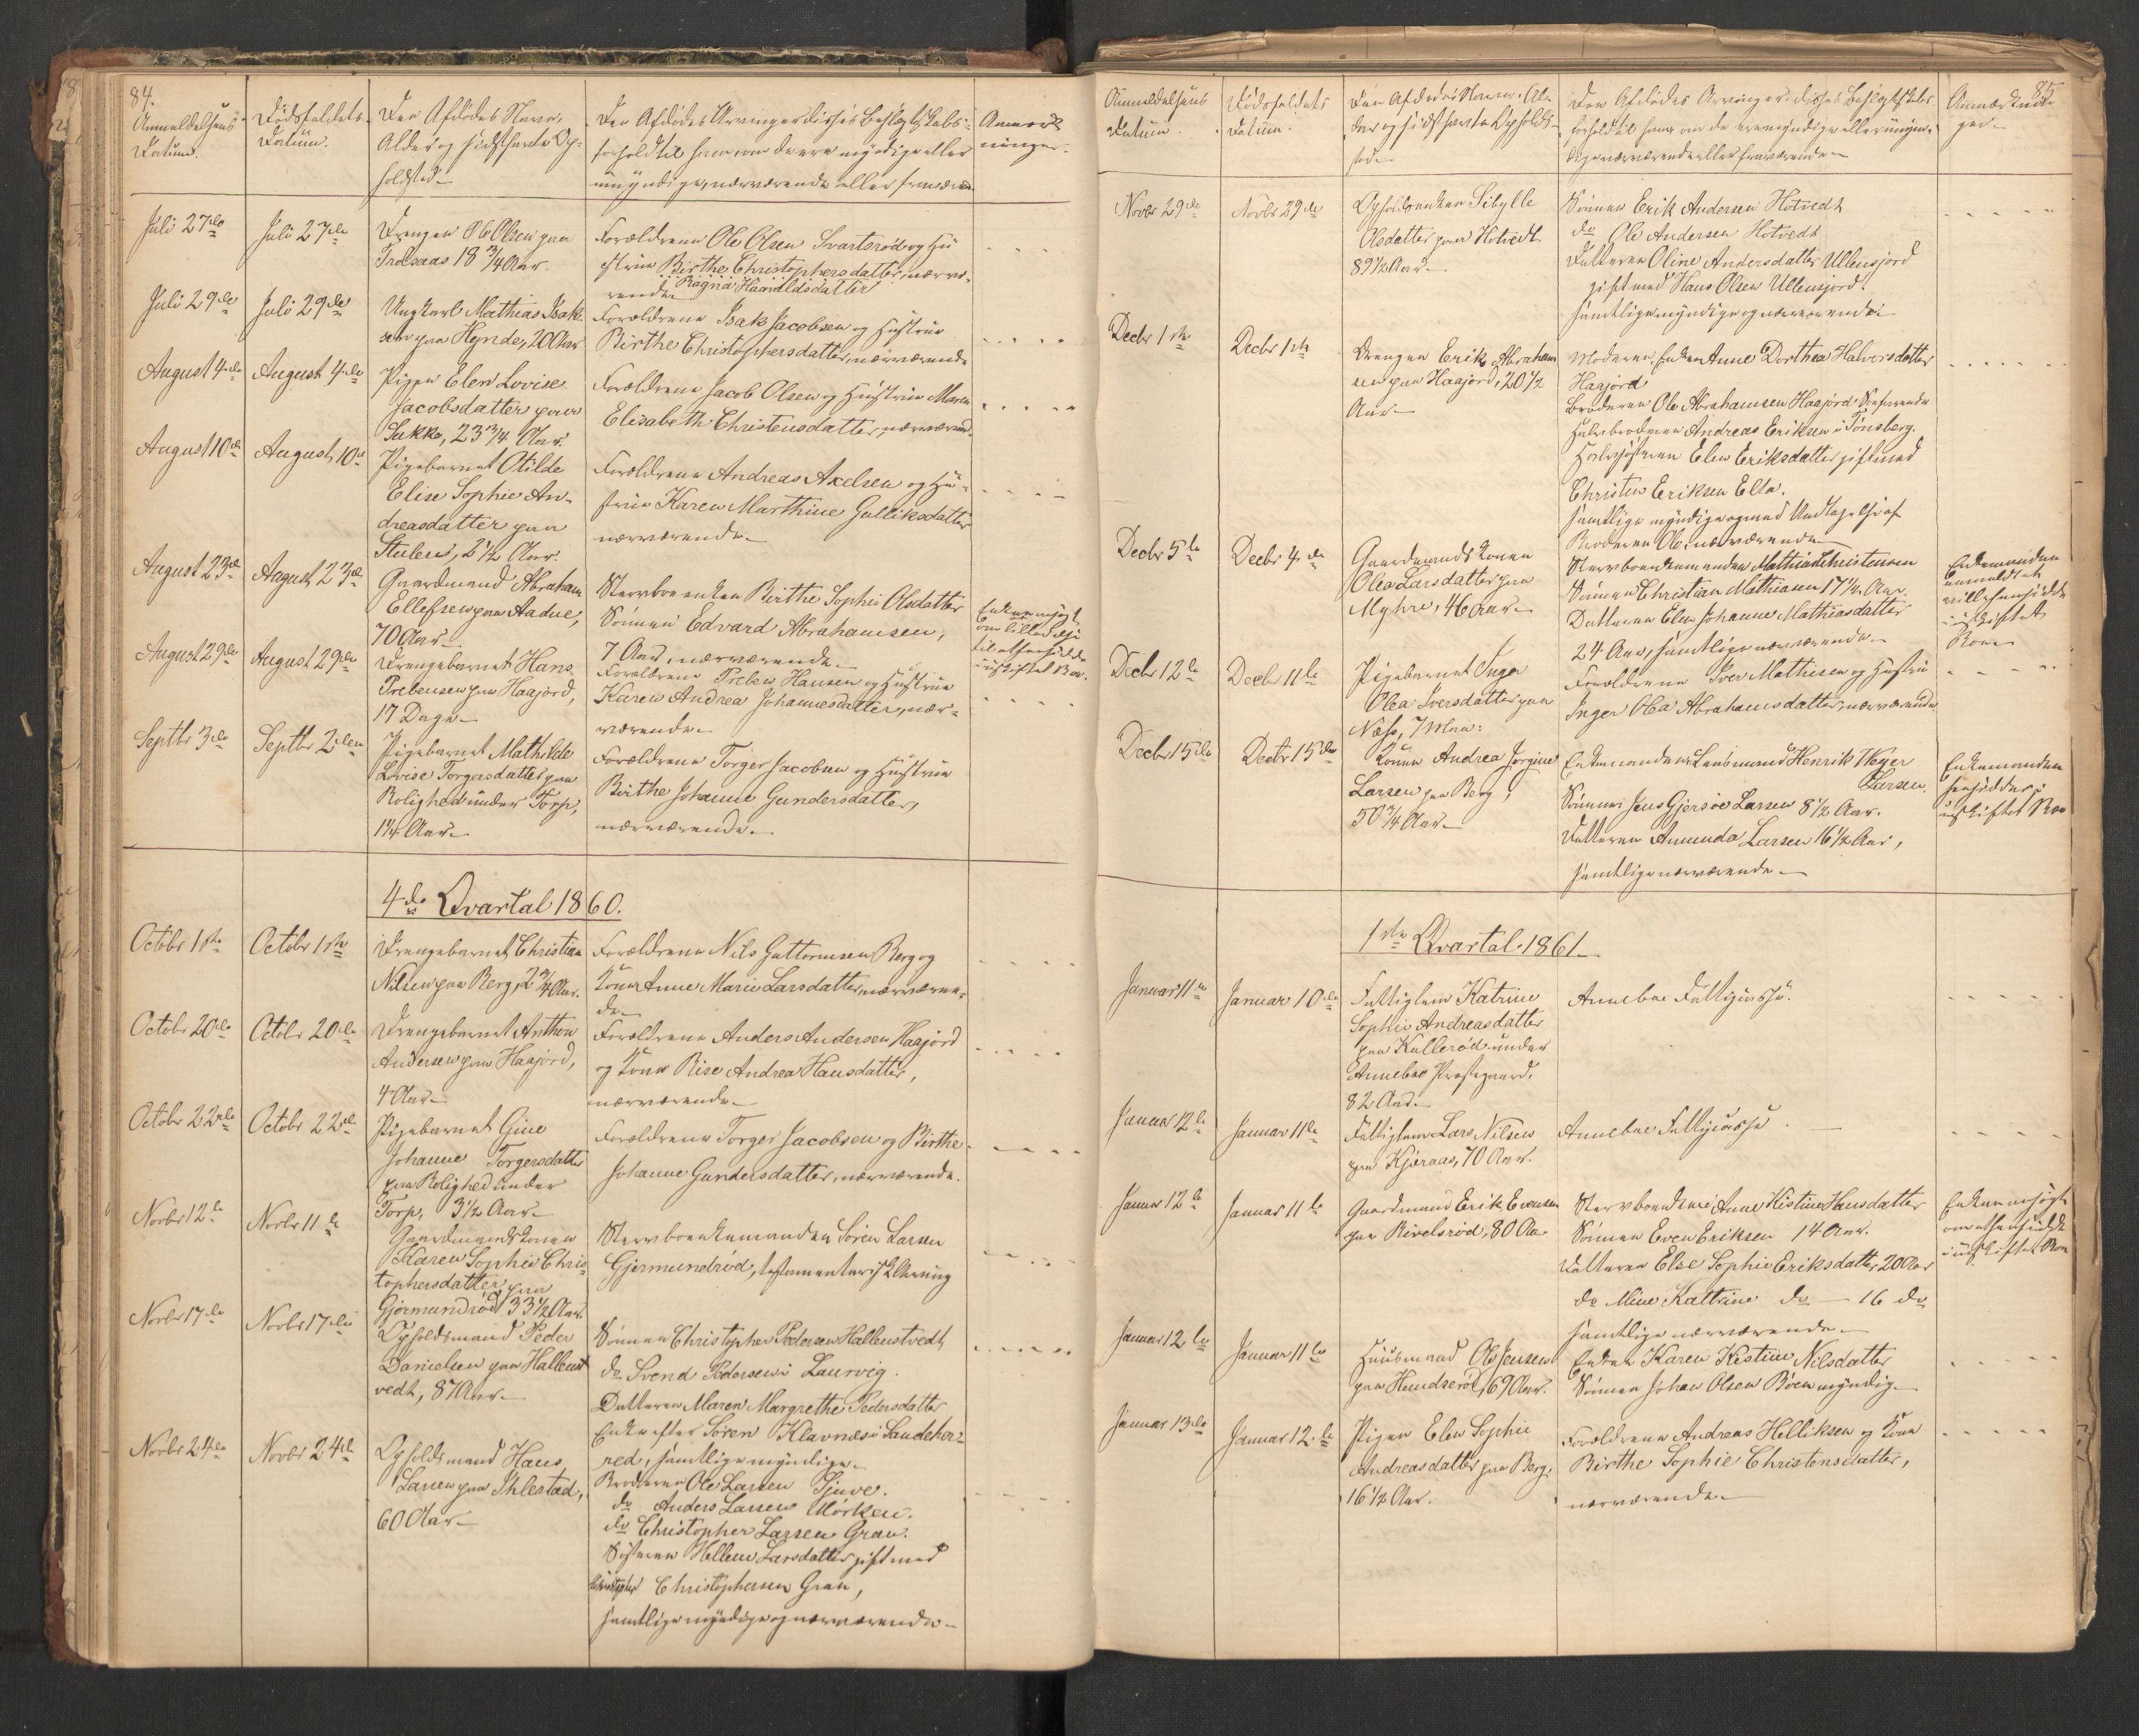 84.
Anmeldelsens
Datum.
Dödsfaldets
Datum.
Den Afdödes Navn,
Alder og sidst havte Op-
holdsted
Den Afdödes Arvinger disses Beslægtskabs-
forhold til ham, om de ere myndige eller
umyndige, nærværende eller fraværende
Anmærk
ninger.
Juli 27de
Juli 27de
Drengen Ole Olsen paa
Trolsaas 18 3/4 Aar.
Forældrene Ole Olsen Svartsrød og Hu
strue Birthe Christophersdatter, nærvæ-
rende Ragna Haraldsdatter
Juli 29de
Juli 29de
Ungkarl Mathias Isak
sen paa Hynde, 20 Aar
Forældrene Isak Jacobsen og Hustrue
Birthe Christophersdatter, nærværende
August 4de
August 4de
Pigen Elen Lovise
Jacobsdatter paa
Sukke, 23 3/4 Aar.
Forældrene Jacob Olsen og Hustrue Maren
Elisabeth Christensdatter, nærværende
August 10de
August 10de
Pigebarnet Otilde
Elise Sophie An-
dreasdatter paa
Stulen, 2 1/2 Aar.
Forældrene Andreas Axelsen og Hu-
strue Karen Marthine Gulliksdatter
nærværende
August 23de
August 23de
Gaardmand Abraham
Ellefsen paa Aadne,
70 Aar
Stervboenken Birthe Sophie Olsdatter
Sönnen Edvard Abrahamsen,
7 Aar, nærværende
Enken
om Tilladelse
til at hensidde
i uskiftet Boe.
August 29de
August 29de
Drengebarnet Hans
Prebensen paa Haajord,
17 Dage
Forældrene Preben Hansen og Hustrue
Karen Andrea Johannesdatter, nær-
værende
Septbr 3de
Septbr 2den
Pigebarnet Mathilde
Lovise Torgersdatter paa
Rolighed under Torp,
1 1/4 Aar
Forældrene Torger Jacobsen og Hustrue
Birthe Johanne Gundersdatter,
nærværende.
4de Qvartal 1860.
Octobr 1ste
Octobr 1ste
Drengebarnet Christian
Nilsen paa Berg, 2 3/4 Aar.
Forældrene Nils Guttormsen Berg og
Kone Anne Marie Larsdatter, nærværen-
de
Octobr 20de
Octobr 20de
Drengebarnet Anthon
Andersen paa Haajord,
4 Aar
Forældrene Anders Andersen Haajord
og Kone Rise Andrea Hansdatter,
nærværende
Octobr 22de
Octobr 22de
Pigebarnet Gine
Johanne Torgersdatter
paa Rolighed under
Torp, 3 1/2 Aar
Forældrene Torger Jacobsen og Birthe
Johanne Gundersdatter, nærværende.
Novbr 12te
Novbr 11te
Gaardmandskonen
Karen Sophie Chris
tophersdatter paa
Gjermundrød 33 1/2 Aar.
Stervboenkemanden Sören Larsen
Gjermundrød, testamentarisk Arving
Novbr 17de
Novbr 17de
Opholdsmand Peder
Danielsen paa Hallenst
vedt, 87 Aar
Sönnen Christopher Pedersen Hallenstvedt
do Svend Pedersen i Laurvig.
Datteren Maren Margrethe Pedersdatter
Enke efter Sören Klavnæs i Sandeher-
red, samtlige myndige
Novbr 24de
Novbr 24de
Opholdsmand Hans
Larsen paa Ihlestad,
60 Aar
Broderen Ole Larsen Sjuve.
do Anders Larsen Mörken.
do Christopher Larsen Gran.
Sösteren Hellene Larsdatter gift med
Christopher Christophersen Gran,
samtlige myndige og nærværende
85
Anmeldelsens
Datum.
Dödsfaldets
Datum.
Den Afdödes Navn, Al-
der og sidst havte Opholds-
sted
Den Afdödes Arvinger, disses Beslægtskabs-
forhold til ham om de ere myndige eller umyn-
dige nærværende eller fraværende
Anmærknin
ger
Novbr 29de
Novbr 29de
Opholdsenken Sibylle
Olsdatter paa Hotvedt
89 1/2 Aar
Sönnen Erik Andersen Hotvedt
do Ole Andersen Hotvedt
Datteren Oline Andersdatter Ullensjord
gift med Hans Olsen Ullensjord.
samtlige myndige og nærværende
Decbr 1ste
Decbr 1ste
Drengen Erik Abraham
sen paa Haajord, 20 1/2
Aar
Moderen, Enken Anne Dorthea Halvorsdatter
Haajord
Broderen Ole Abrahamsen Haajord Söefarende
Halvbroderen Andreas Eriksen i Tönsberg.
Halvsösteren Elen Eriksdatter gift med
Christen Eriksen Ella.
samtlige myndige og med Undtagelse af
Broderen Ole, nærværende
Decbr 5te
Decbr 4de
Gaardmandskonen
Olea Larsdatter paa
Myhre, 46 Aar
Stervboenkemanden Mathias Christensen
Sönnen Christian Mathiasen 17 1/2 Aar.
Datteren Elen Johanne Mathiasdatter
24 Aar, samtlige nærværende
Enkemanden
anmeldt at
ville hensidde
i uskiftet
Boe
Decbr 12te
Decbr 11te
Pigebarnet Inga
Olea Iversdatter paa
Næss, 7 Mdr:
Forældrene Iver Mathisen og Hustru
Inger Olea Abrahamsdatter, nærværende
Decbr 15de
Decbr 15de
Konen Andrea Jorgine
Larsen paa Berg,
50 3/4 Aar
Enkemanden Lensmand Henrik Meyer
Larsen.
Sönnen Jens Gjersöe Larsen 8 1/2 Aar.
Datteren Amunda Larsen 16 1/2 Aar,
samtlige nærværende
Enkemanden
hensidder i
uskiftet Boe
1ste Qvartal 1861
Januar 11te
Januar 10de
Fattiglem Katrine
Sophie Andreasdatter
paa Kullerød under
Anneboe Præstegaard.
82 Aar
Anneboe Fattigkasse.
Januar 12te
Januar 11te
Fattiglem Lars Nilsen
paa Kjæraas, 70 Aar.
Anneboe Fattigkasse.
Januar 12te
Januar 11te
Gaardmand Erik Evensen
paa Rivelsrød, 80 Aar
Stervboenken Anne Kistine Hansdatter
Sönnen Even Eriksen 14 Aar.
Datteren Else Sophie Eriksdatter 20 Aar
do Mine Kattrine do 16 do
samtlige nærværende
Enken
om at hensidde
i uskiftet Boe
Januar 12te
Januar 11te
Huusmand Ole Jensen
paa Hundserød, 69 Aar.
Enken Karen Kistine Nilsdatter
Sönnen Johan Olsen Böen myndig
Januar 13de
Januar 12te
Pigen Elen Sophie
Andreasdatter paa Berg,
16 1/2 Aar.
Forældrene Andreas Helliksen og Kone
Birthe Sophie Christensdatter,
nærværende